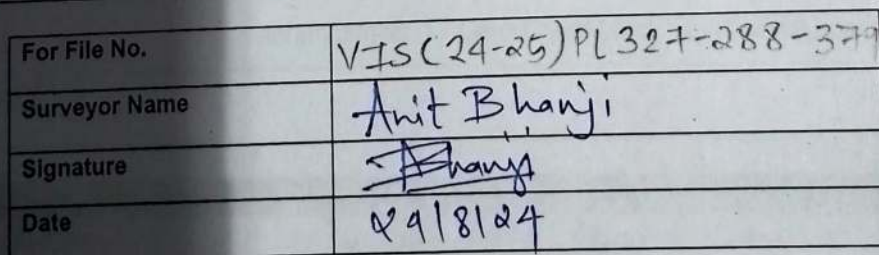 For File No. VIS(24-25)PL327-288-379
Surveyor Name Anit Bhanji
Signature Bhanji
Date 29/8/24